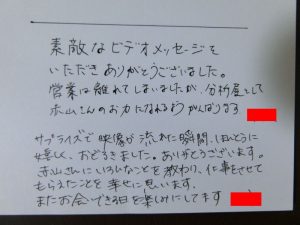 素敵なビデオメッセージを
いただきありがとうございました。
営業は離れてしまいましたが、分析屋として
赤山さんのお力になれるようがんばります
サプライズで映像が流れた瞬間、1日とうに
嬉しく、おどろきました。ありがとうございます。
赤山さんにいろいろなことを教わり、仕事をさせて
もらえたことを幸せに思います。
またお会いできる日を楽しみにしてます